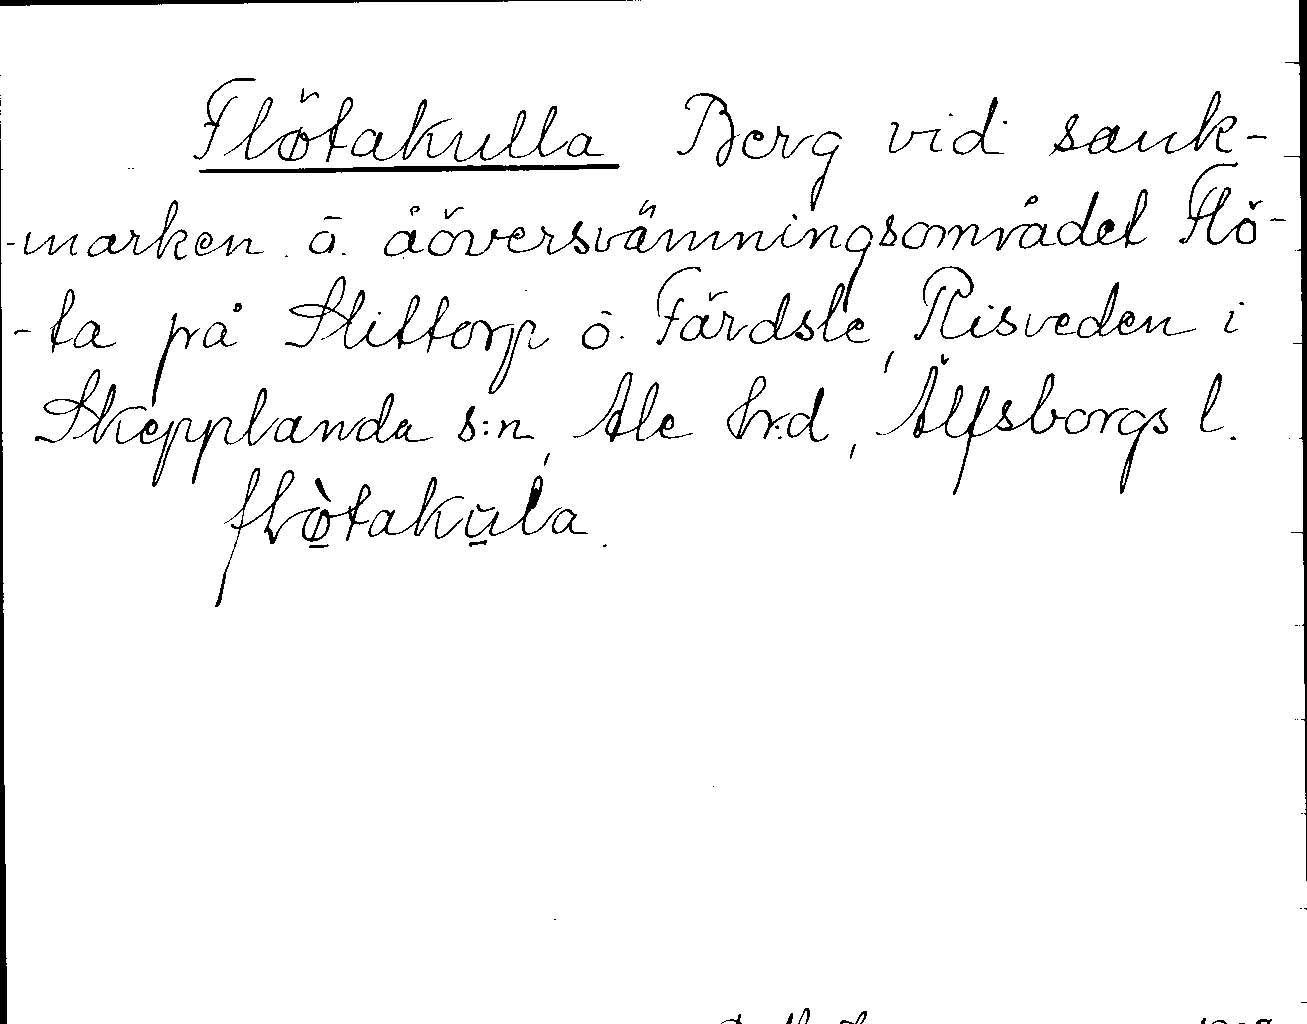 Flötakulla Berg vid sank-
-marken o. åöversvämningsområdet Flö-
-ta på Slittorp o. Färdsle, Risveden i
Skepplanda s:n, Ale hrd, Älfsborgs l.
flø̀takula.